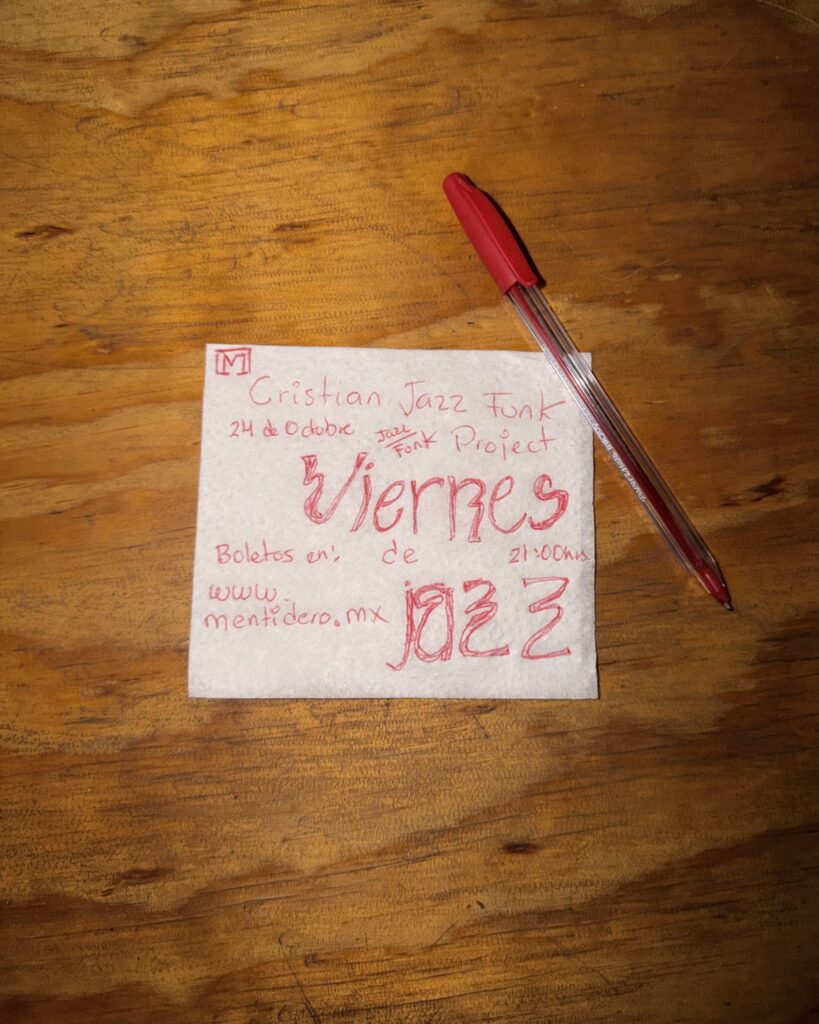 M
Cristian Jazz Funk
24 de Octubre Jazz Funk Project
Viernes
Boletos en: de 21:00hrs
www.
mentidero.mx jazz